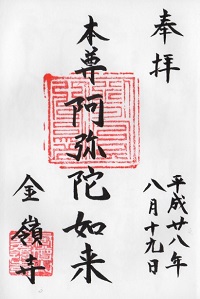 奉拝
平成廿八年
八月十九日
本尊
阿弥陀如来
金嶺寺